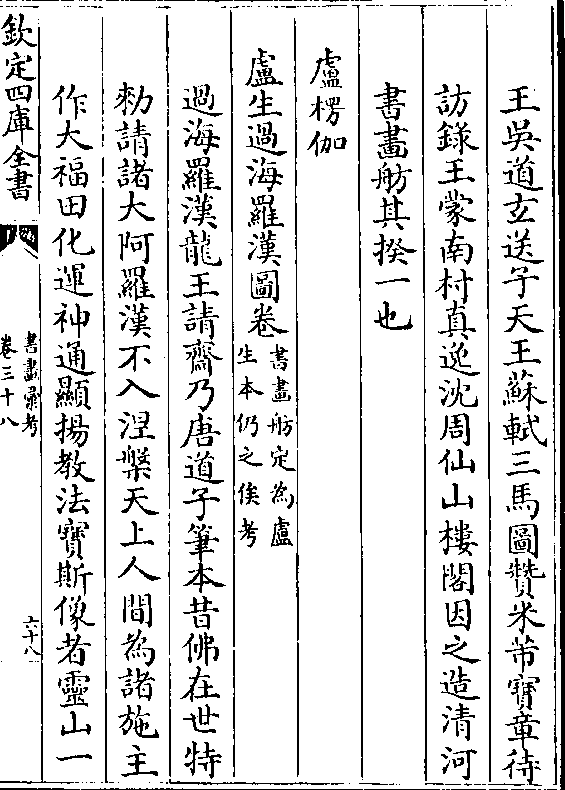 王吳道玄送子天王蘇軾三馬圖贊米芾寶章待
訪錄王蒙南村真逸沈周仙山樓閣因之造清河
書畫舫其揆一也
盧楞伽
盧生過海羅漢圖卷書畫舫定為盧
生本仍之俟考
過海羅漢龍王請齋乃唐道子筆本昔佛在世特
勅請諸大阿羅漢不入涅槃天上人間為諸施主
作大福田化運神通顯揚教法寶斯像者靈山一
欽定四庫全書
書畫彙考
卷三十八
六十八